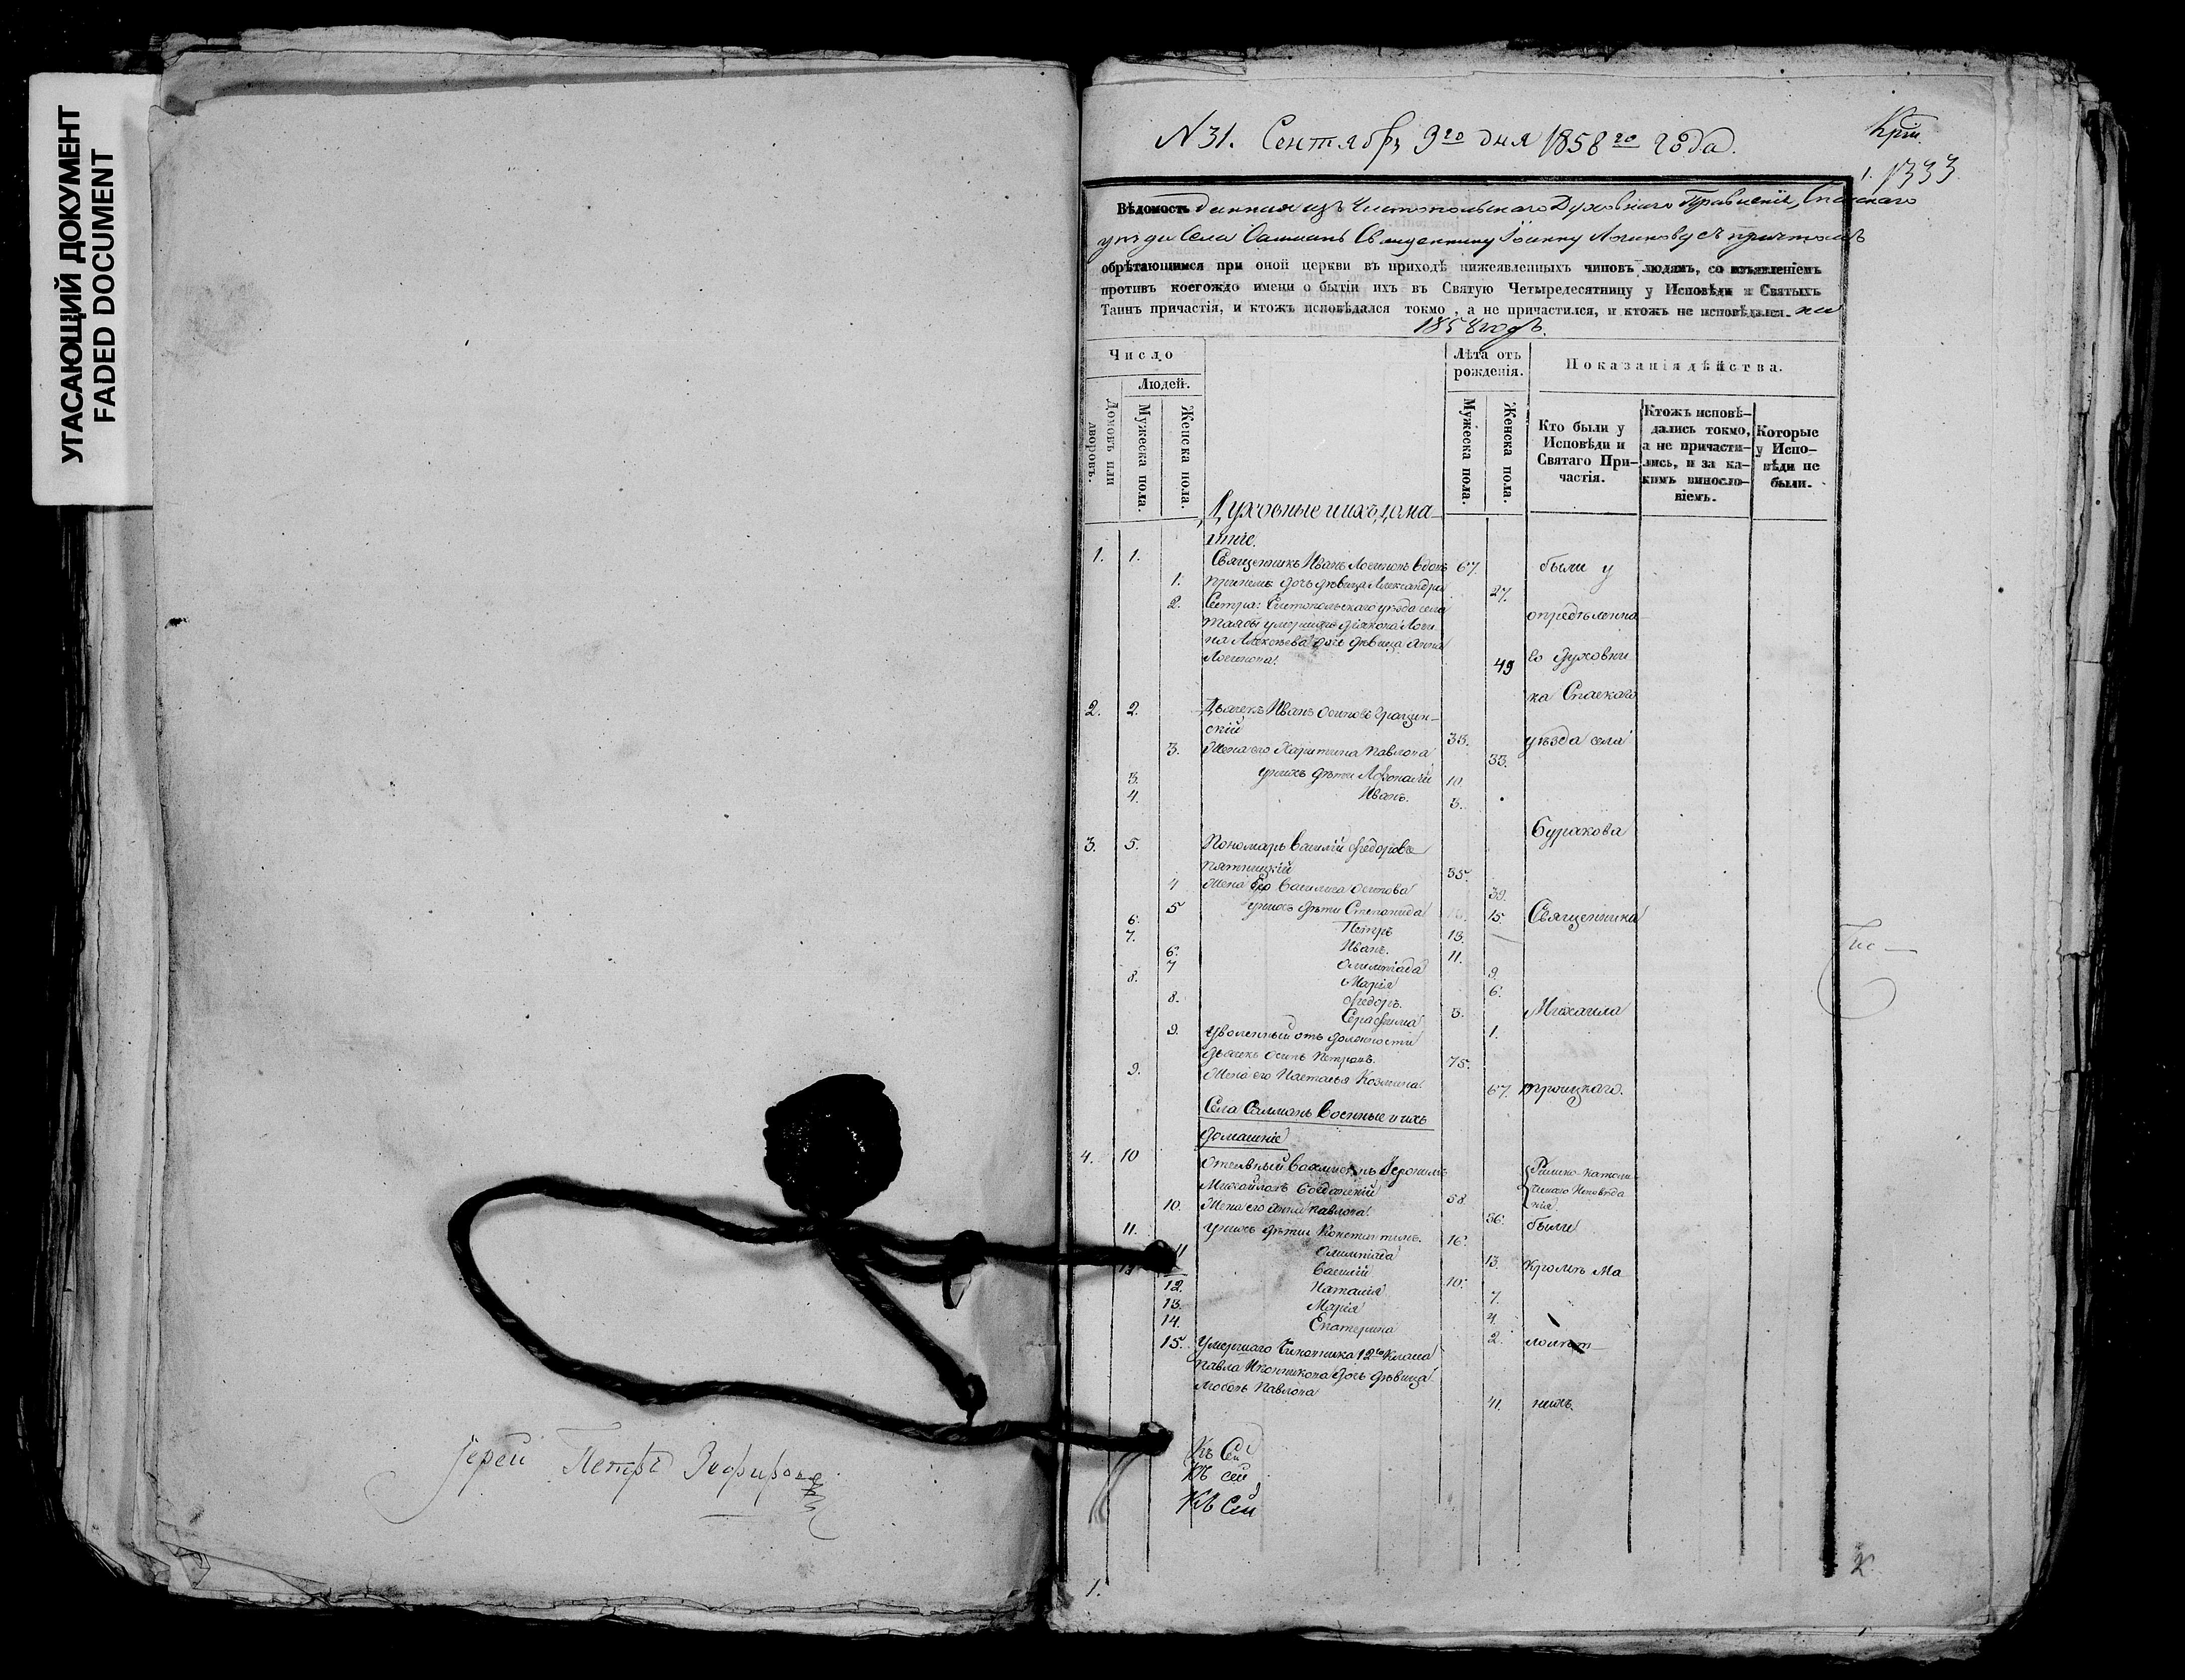 УГАСАЮЩИЙ ДОКУМЕНТ
FADED DOCUMENT
Іерей Петръ
N 31. Сентябр. 9го дня 1858го года.
1333
Вѣдомость данная изъ Чистопольскаго Духовнаго Правленія, Спасскаго
уѣзда Села Салманъ Священнику Іоанну Логинову съ причтомъ
обрѣтающимся при оной церкви въ приходѣ нижеявленныхъ чиновъ людямъ, со изъявленіемъ
противъ коегождо имени о бытіи ихъ въ Святую Четыредесятницу у Исповѣди и Святыхъ
Таинъ причастія, и ктожъ исповѣдался токмо, а не причастился, и ктожъ не исповѣдался. на
1858 годъ.
Число
Людей.
Домовъ или дворовъ.
Мужеска пола.
Женска пола.
Лѣта отъ рожденія.
Мужеска пола.
Женска пола.
Показанія дѣйства.
Кто были у Исповѣди и Святаго Причастія.
Ктожъ исповѣдались токмо, а не причастились, и за какимъ винословіемъ.
Которые у Исповѣди не были.
Духовные и ихъ дома-
шніе.
1. 1. Священникъ Иванъ Логиновъ вдовъ 67. были у
1. дочь дѣвица Александра 27.
2. Сестра: Чистопольскаго уѣзда села опредѣленна
дьякона Логи
на Алексѣева дочь дѣвица Анна
Логинова. 49 го духовни
ка Спаскаго
2. 2. Дьячекъ Иванъ Осиповъ Грацин-
скій 33. уѣзда села
3. Жена его Павлова 33.
3. у нихъ дѣти 10.
4. Иванъ. 3.
Буракова
3. 5. Пономарь Василій Ѳедоровъ
Пятницкій 35.
4 Жена его Василиса Осипова 39.
5 у нихъ дѣти Степанида 15. Священника
6. Петръ 13.
7. Иванъ. 11.
6. Олимпіада 9.
7 Марія 6.
8. Ѳедоръ. 3. Михаила
8. Серафима 1.
9. Уволенный отъ должности
дьячекъ Осипъ Петровъ. 75.
9. Жена его Наталья Козмина. 67. Троицкаго.
Села Салманъ Военные и ихъ
домашніе
4. 10 Іеронимъ Римско-католи
Михайловъ 58 ческаго Исповѣда
нія
10. Жена его Анна Павлова. 36. были
11. у нихъ дѣти Константинъ. 16.
11 Олимпіада 13. кромѣ ма
Василій 10.
12. Наталія 7.
13. Марія 4.
14. Екатерина 2. лолѣт
15. Умершаго Чиновника 12го Класа
Павла дочь дѣвица
Любовь Павлова 41. нихъ.
Къ Сей
Къ сей
Къ Сей
1.
2